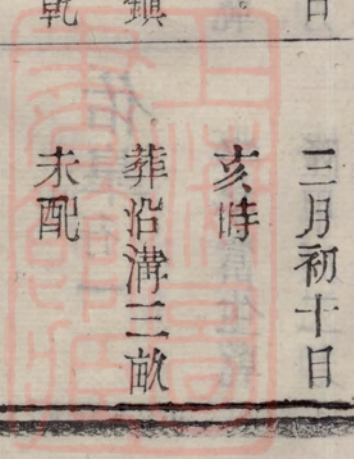 三月初十日
亥時
葬沿溝三畝
未配